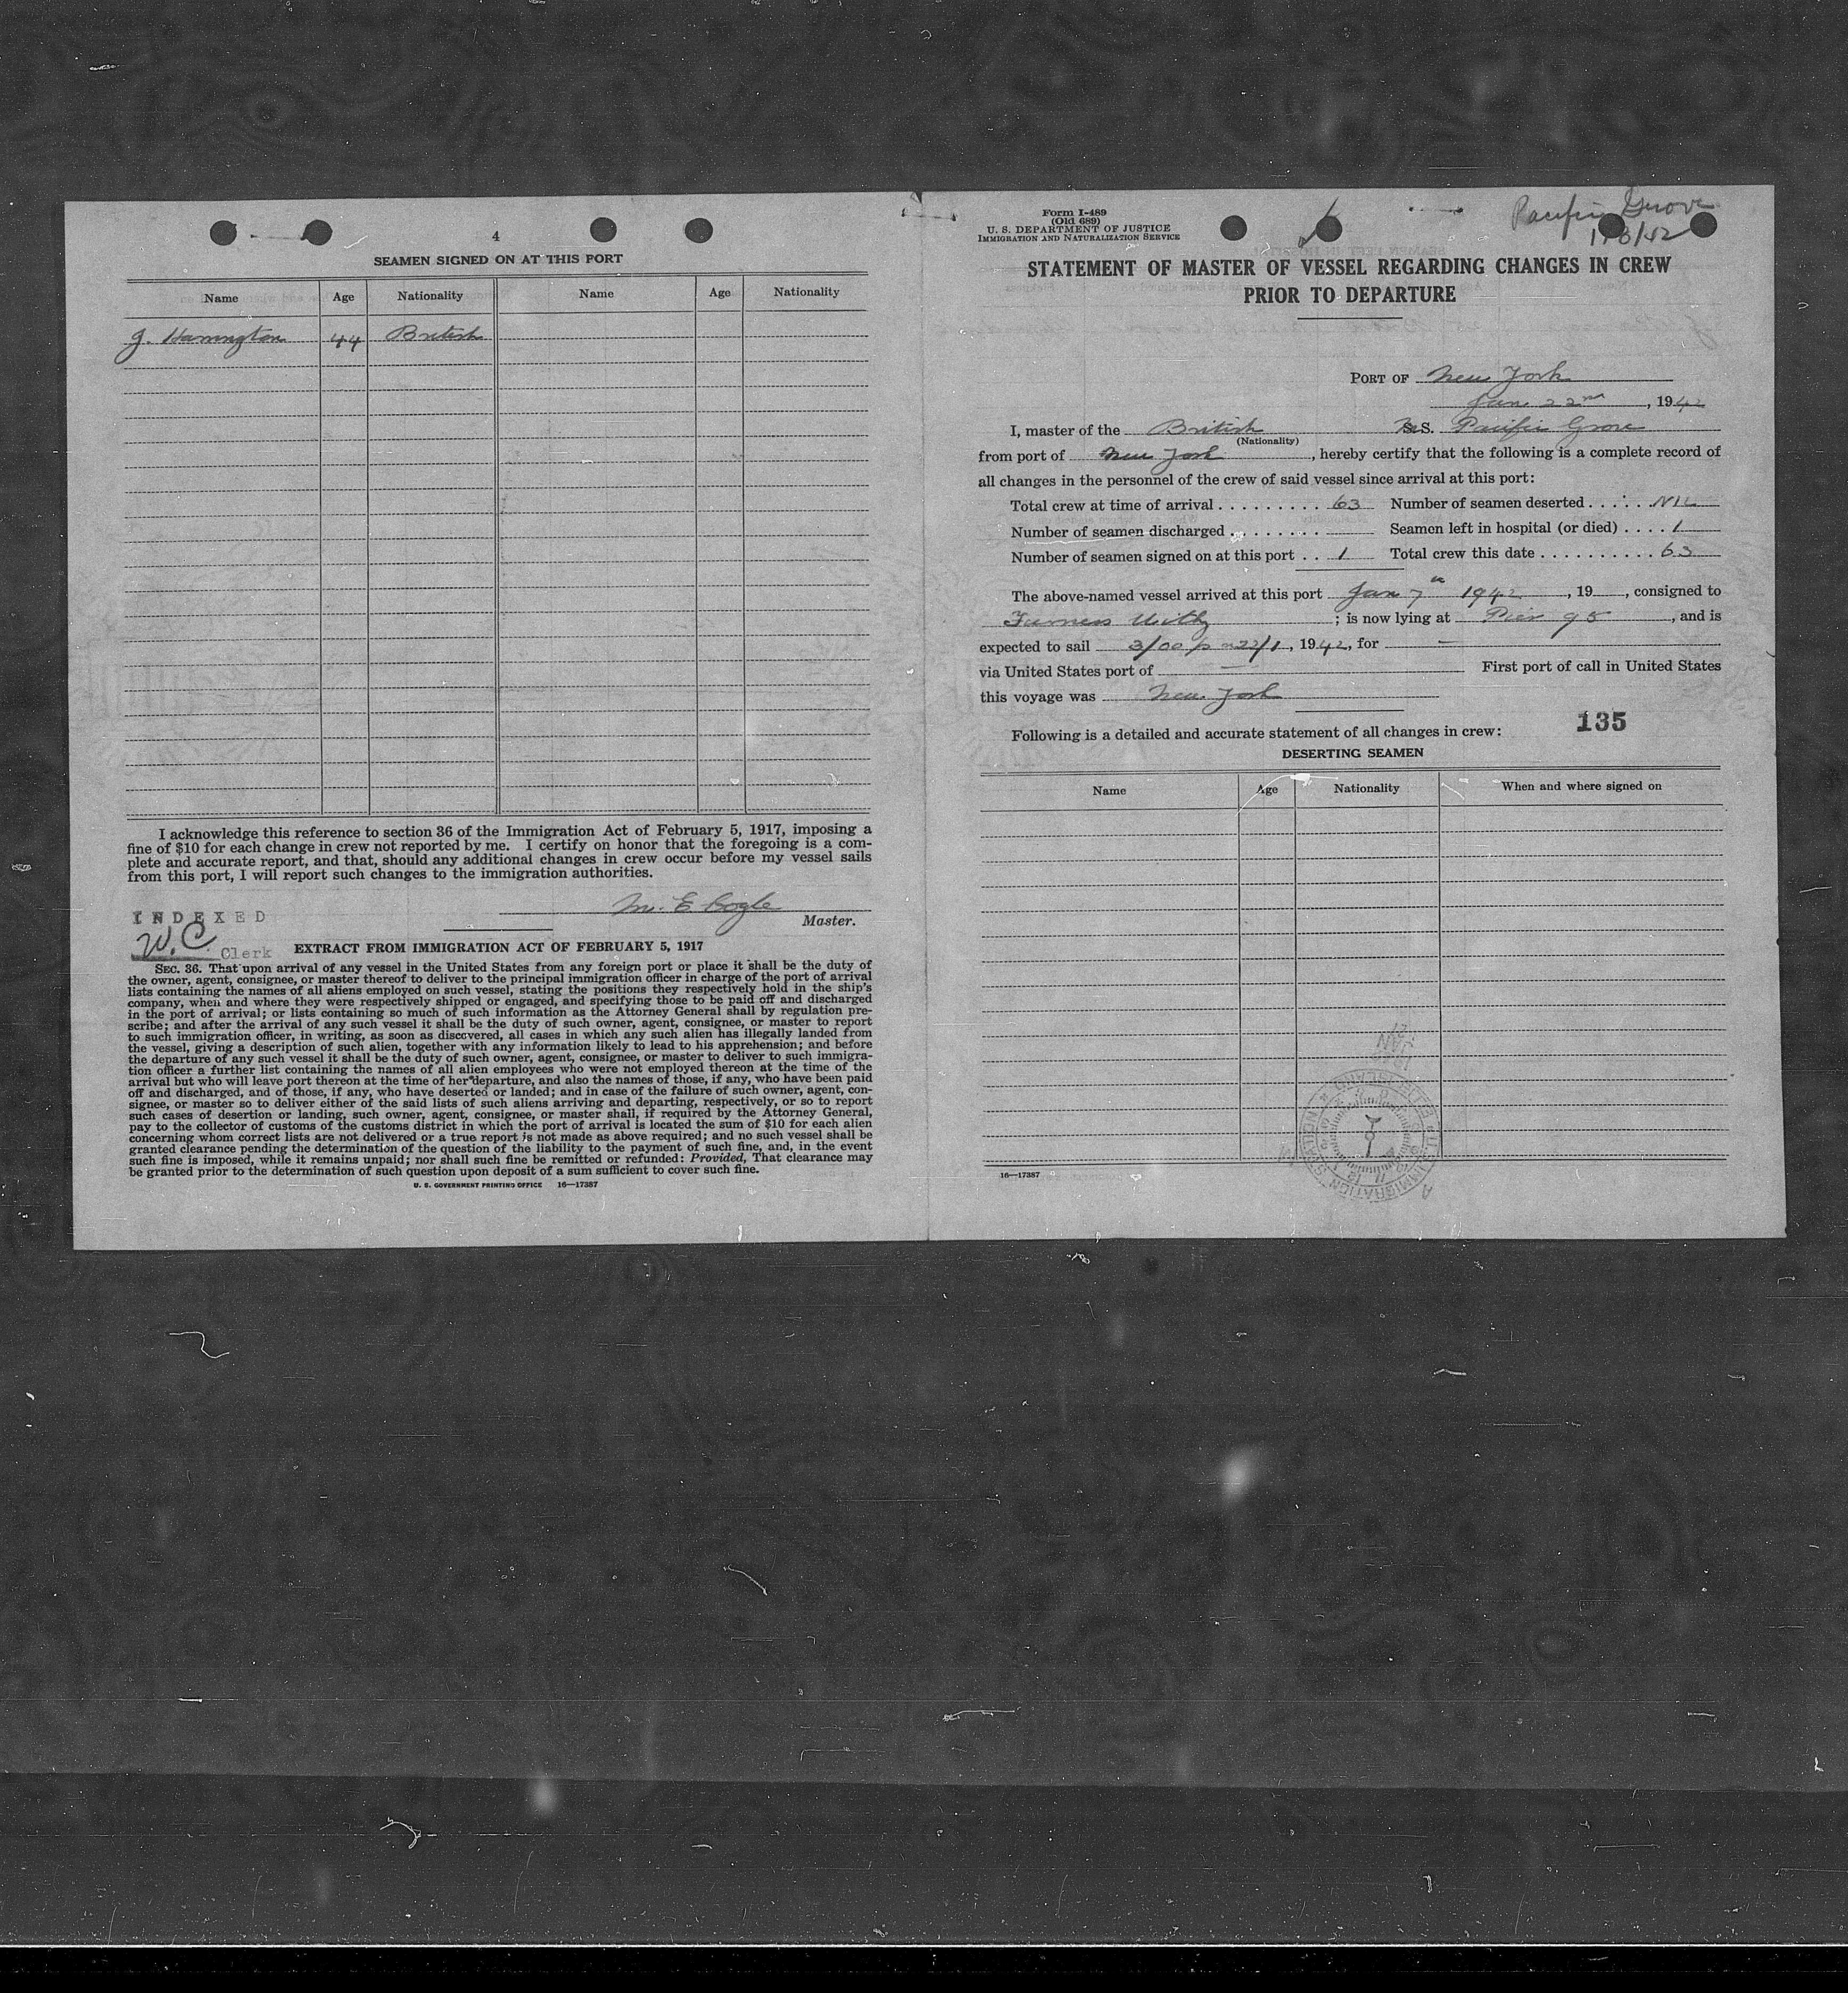 4
SEAMEN SIGNED ON AT THIS PORT
Name Age Nationality Name Age Nationality
J. Harrington 44 British
I acknowledge this reference to section 36 of the Immigration Act of February 5, 1917, imposing a
fine of $10 for each change in crew not reported by me. I certify on honor that the foregoing is a com-
plete and accurate report, and that, should any additional changes in crew occur before my vessel sails
from this port, I will report such changes to the immigration authorities.
M. E. Cogle
Master.
INDEXED
W.C. Clerk
EXTRACT FROM IMMIGRATION ACT OF FEBRUARY 5, 1917
SEC. 36. That upon arrival of any vessel in the United States from any foreign port or place it shall be the duty of
the owner, agent, consignee, or master thereof to deliver to the principal immigration officer in charge of the port of arrival
lists containing the names of all aliens employed on such vessel, stating the positions they respectively hold in the ship's
company, when and where they were respectively shipped or engaged, and specifying those to be paid off and discharged
in the port of arrival; or lists containing so much of such information as the Attorney General shall by regulation pre-
scribe; and after the arrival of any such vessel it shall be the duty of such owner, agent, consignee, or master to report
to such immigration officer, in writing, as soon as discovered, all cases in which any such alien has illegally landed from
the vessel, giving a description of such alien, together with any information likely to lead to his apprehension; and before
the departure of any such vessel it shall be the duty of such owner, agent, consignee, or master to deliver to such immigra-
tion officer a further list containing the names of all alien employees who were not employed thereon at the time of the
arrival but who will leave port thereon at the time of her departure, and also the names of those, if any, who have been paid
off and discharged, and of those, if any, who have deserted or landed; and in case of the failure of such owner, agent, con-
signee, or master so to deliver either of the said lists of such aliens arriving and departing, respectively, or so to report
such cases of desertion or landing, such owner, agent, consignee, or master shall, if required by the Attorney General,
pay to the collector of customs of the customs district in which the port of arrival is located the sum of $10 for each alien
concerning whom correct lists are not delivered or a true report is not made as above required; and no such vessel shall be
granted clearance pending the determination of the question of the liability to the payment of such fine, and, in the event
such fine is imposed, while it remains unpaid; nor shall such fine be remitted or refunded: Provided, That clearance may
be granted prior to the determination of such question upon deposit of a sum sufficient to cover such fine.
U. S. GOVERNMENT PRINTING OFFICE 16—17387
Form I-489
(Old 689)
U. S. DEPARTMENT OF JUSTICE
IMMIGRATION AND NATURALIZATION SERVICE
Pacific Grove
1/8/42
STATEMENT OF MASTER OF VESSEL REGARDING CHANGES IN CREW
PRIOR TO DEPARTURE
PORT OF New York
Jan 22nd, 1942
I, master of the British M.S. Pacific Grove
(Nationality)
from port of New York, hereby certify that the following is a complete record of
all changes in the personnel of the crew of said vessel since arrival at this port:
Total crew at time of arrival 63 Number of seamen deserted NIL
Number of seamen discharged Seamen left in hospital (or died) 1
Number of seamen signed on at this port 1 Total crew this date 63
The above-named vessel arrived at this port Jan 7th 1942, 19 , consigned to
Furness Withy; is now lying at Pier 95, and is
expected to sail 3/00 p m 22/1, 1942, for —
via United States port of — First port of call in United States
this voyage was New York
135
Following is a detailed and accurate statement of all changes in crew:
DESERTING SEAMEN
Name Age Nationality When and where signed on
16—17387